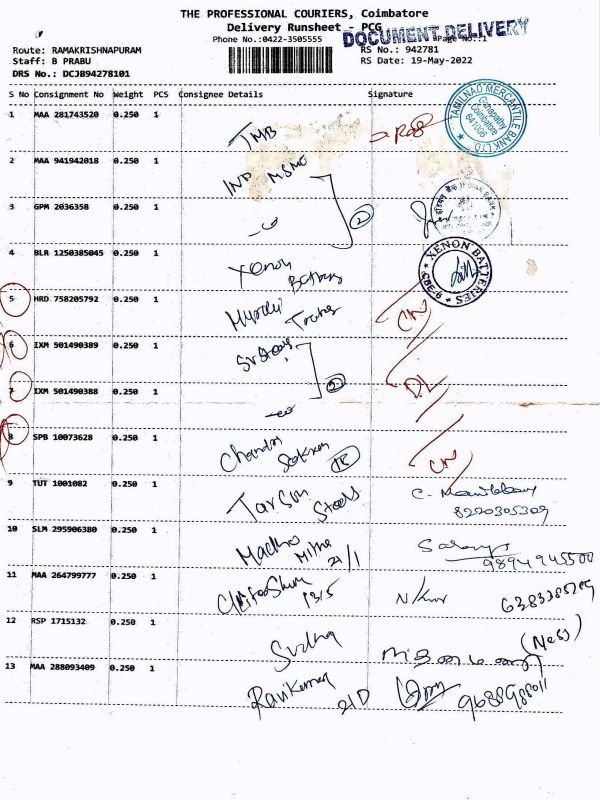 THE PROFESSIONAL COURIERS, Coimbatore
Delivery Runsheet - PCG
DOCUMENT DELIVERY
Phone No.:0422-3505555
Page No.:1
Route: RAMAKRISHNAPURAM
RS No.: 942781
Staff: B PRABU
RS Date: 19-May-2022
DRS No.: DCJB94278101
S No Consignment No Weight PCS Consignee Details Signature
TAMILNAD MERCANTILE BANK LTD
Ganapathy
Coimbatore
641006
1 MAA 281743520 0.250 1 TMB
2 MAA 941942018 0.250 1 IND MSME
3 GPM 2036358 0.250 1 2
INDIAN BANK
4 BLR 1250385045 0.250 1 Xenon
XENON BATTERIES
CBE-6
5 HRD 758205792 0.250 1 CN
6 IXM 501490389 0.250 1
7 IXM 501490388 0.250 1 2 DL
8 SPB 10073628 0.250 1 Chandra CN
9 TUT 1001082 0.250 1 Steels
8220305309
10 SLM 295906380 0.250 1 Madhu 21/1
9894945500
11 MAA 264799777 0.250 1 1315
12 RSP 1715132 0.250 1 Sudha
13 MAA 288093409 0.250 1 Ravikumar 21D 9688988011